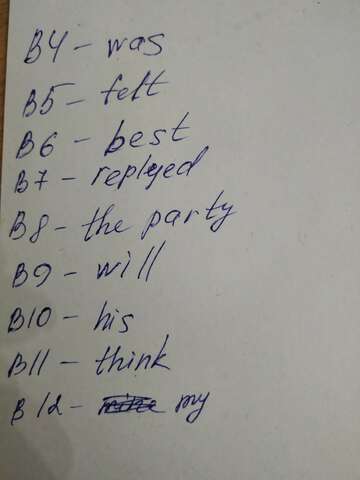 B4 - was
B5 - felt
B6 - best
B7 - replyed
B8 - the party
B9 - will
B10 - his
B11 - think
B12 - my